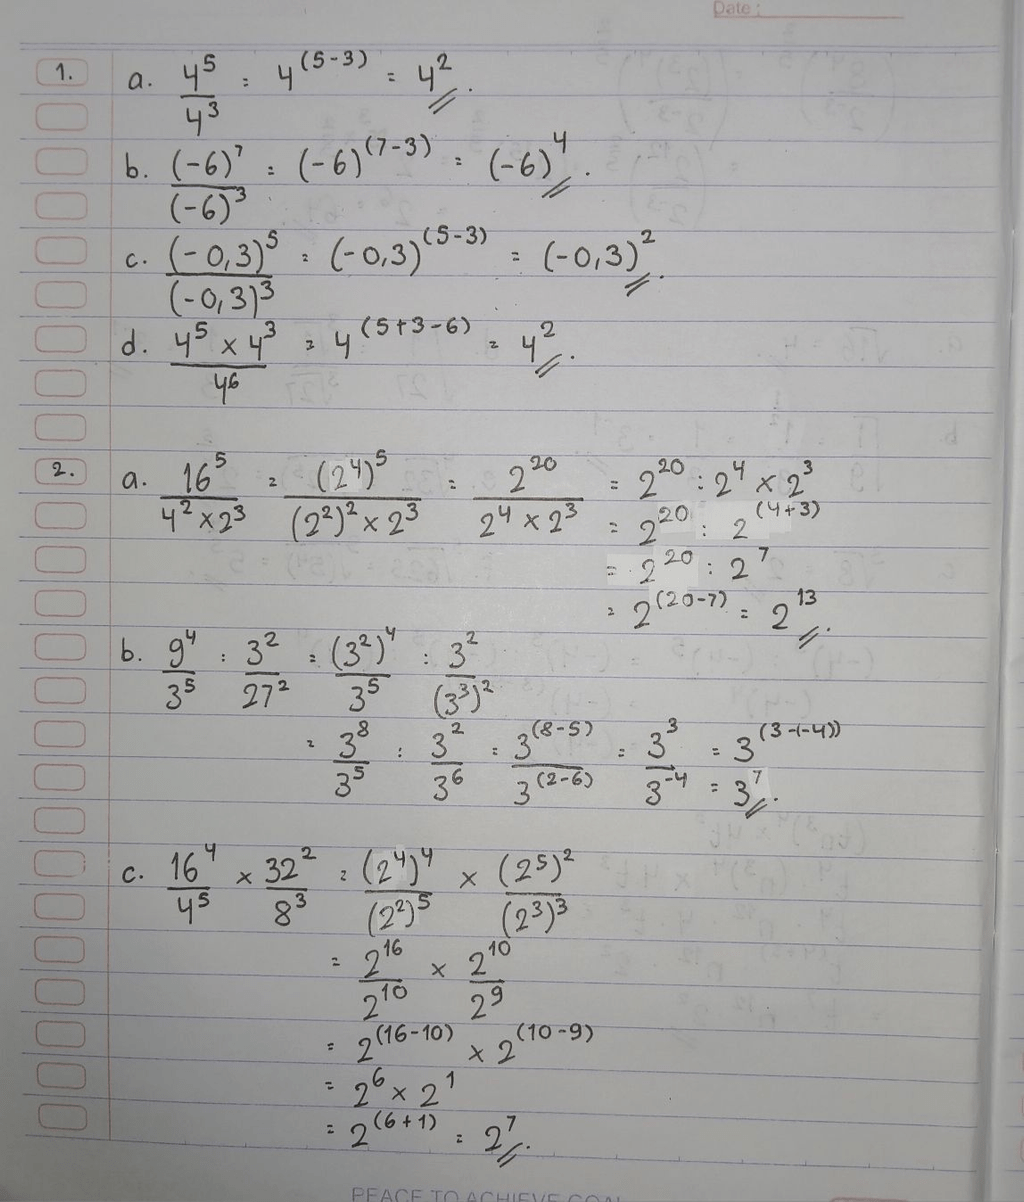 Date :
1. a. 4⁵/4³ = 4⁽⁵⁻³⁾ = 4².
b. (-6)⁷/(-6)³ = (-6)⁽⁷⁻³⁾ = (-6)⁴.
c. (-0,3)⁵/(-0,3)³ = (-0,3)⁽⁵⁻³⁾ = (-0,3)².
d. 4⁵ × 4³/4⁶ = 4⁽⁵⁺³⁻⁶⁾ = 4².
2. a. 16⁵/4² × 2³ = (2⁴)⁵/(2²)² × 2³ = 2²⁰/2⁴ × 2³ = 2²⁰ : 2⁴ × 2³
= 2²⁰ : 2⁽⁴⁺³⁾
= 2²⁰ : 2⁷
= 2⁽²⁰⁻⁷⁾ = 2¹³.
b. 9⁴/3⁵ : 3²/27² = (3²)⁴/3⁵ : 3²/(3³)²
= 3⁸/3⁵ : 3²/3⁶ = 3⁽⁸⁻⁵⁾/3⁽²⁻⁶⁾ = 3³/3⁻⁴ = 3⁽³⁻⁽⁻⁴⁾⁾
= 3⁷.
c. 16⁴/4⁵ × 32²/8³ = (2⁴)⁴/(2²)⁵ × (2⁵)²/(2³)³
= 2¹⁶/2¹⁰ × 2¹⁰/2⁹
= 2⁽¹⁶⁻¹⁰⁾ × 2⁽¹⁰⁻⁹⁾
= 2⁶ × 2¹
= 2⁽⁶⁺¹⁾ = 2⁷.
PEACE TO ACHIEVE